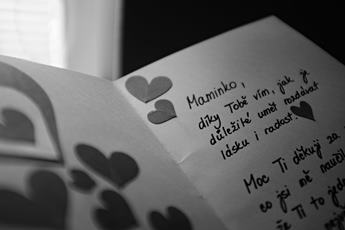 Maminko,
díky Tobě vím, jak je
důležité umět rozdávat
lásku i radost.
Moc Ti děkuji za
co jsi mě naučil
že Ti to jednou